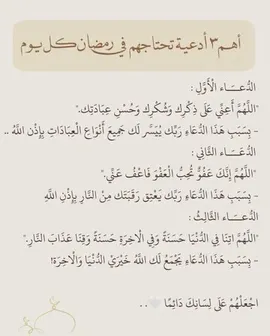 أهم ٣ أدعية تحتاجهم في رمضان كل يوم
الدُّعَــاء الْأَوَّلِ :
"اللَّهُمَّ أَعِنِّي عَلَى ذِكْرِكَ وَشُكْرِكَ وَحُسْنِ عِبَادَتِكَ."
- بِسَبَبِ هَذَا الدُّعَاءِ رَبَّك يُيَسَّر لَك جَمِيعَ أَنْوَاعِ الْعِبَادَاتِ بِإِذْنِ اللَّهُ ..
الدُّعَــاءِ الثَّانِي :
"اللَّهُمَّ إِنَّكَ عَفُوٌّ تُحِبُّ الْعَفْوَ فَاعْفُ عَنِّي."
- بِسَبَبِ هَذَا الدُّعَاءِ رَبِّك يَعْتِق رَقَبَتَك مِنْ النَّارِ بِإِذْنِ اللَّهِ
الدُّعَــاء الثَّالِثُ :
"اللَّهُمَّ اتِنَا فِي الدُّنْيَا حَسَنَةً وَفِي الْآخِرَةِ حَسَنَةً وَقِنَا عَذَابَ النَّارِ."
- بِسَبَبِ هَذَا الدُّعَاءِ يَجْمَعُ لَك اللَّهُ خَيْرَيْ الدُّنْيَا وَالْآخِرَة!
اجْعَلْهُمْ عَلَى لِسَانِكَ دَائِمًا 🤍 . .